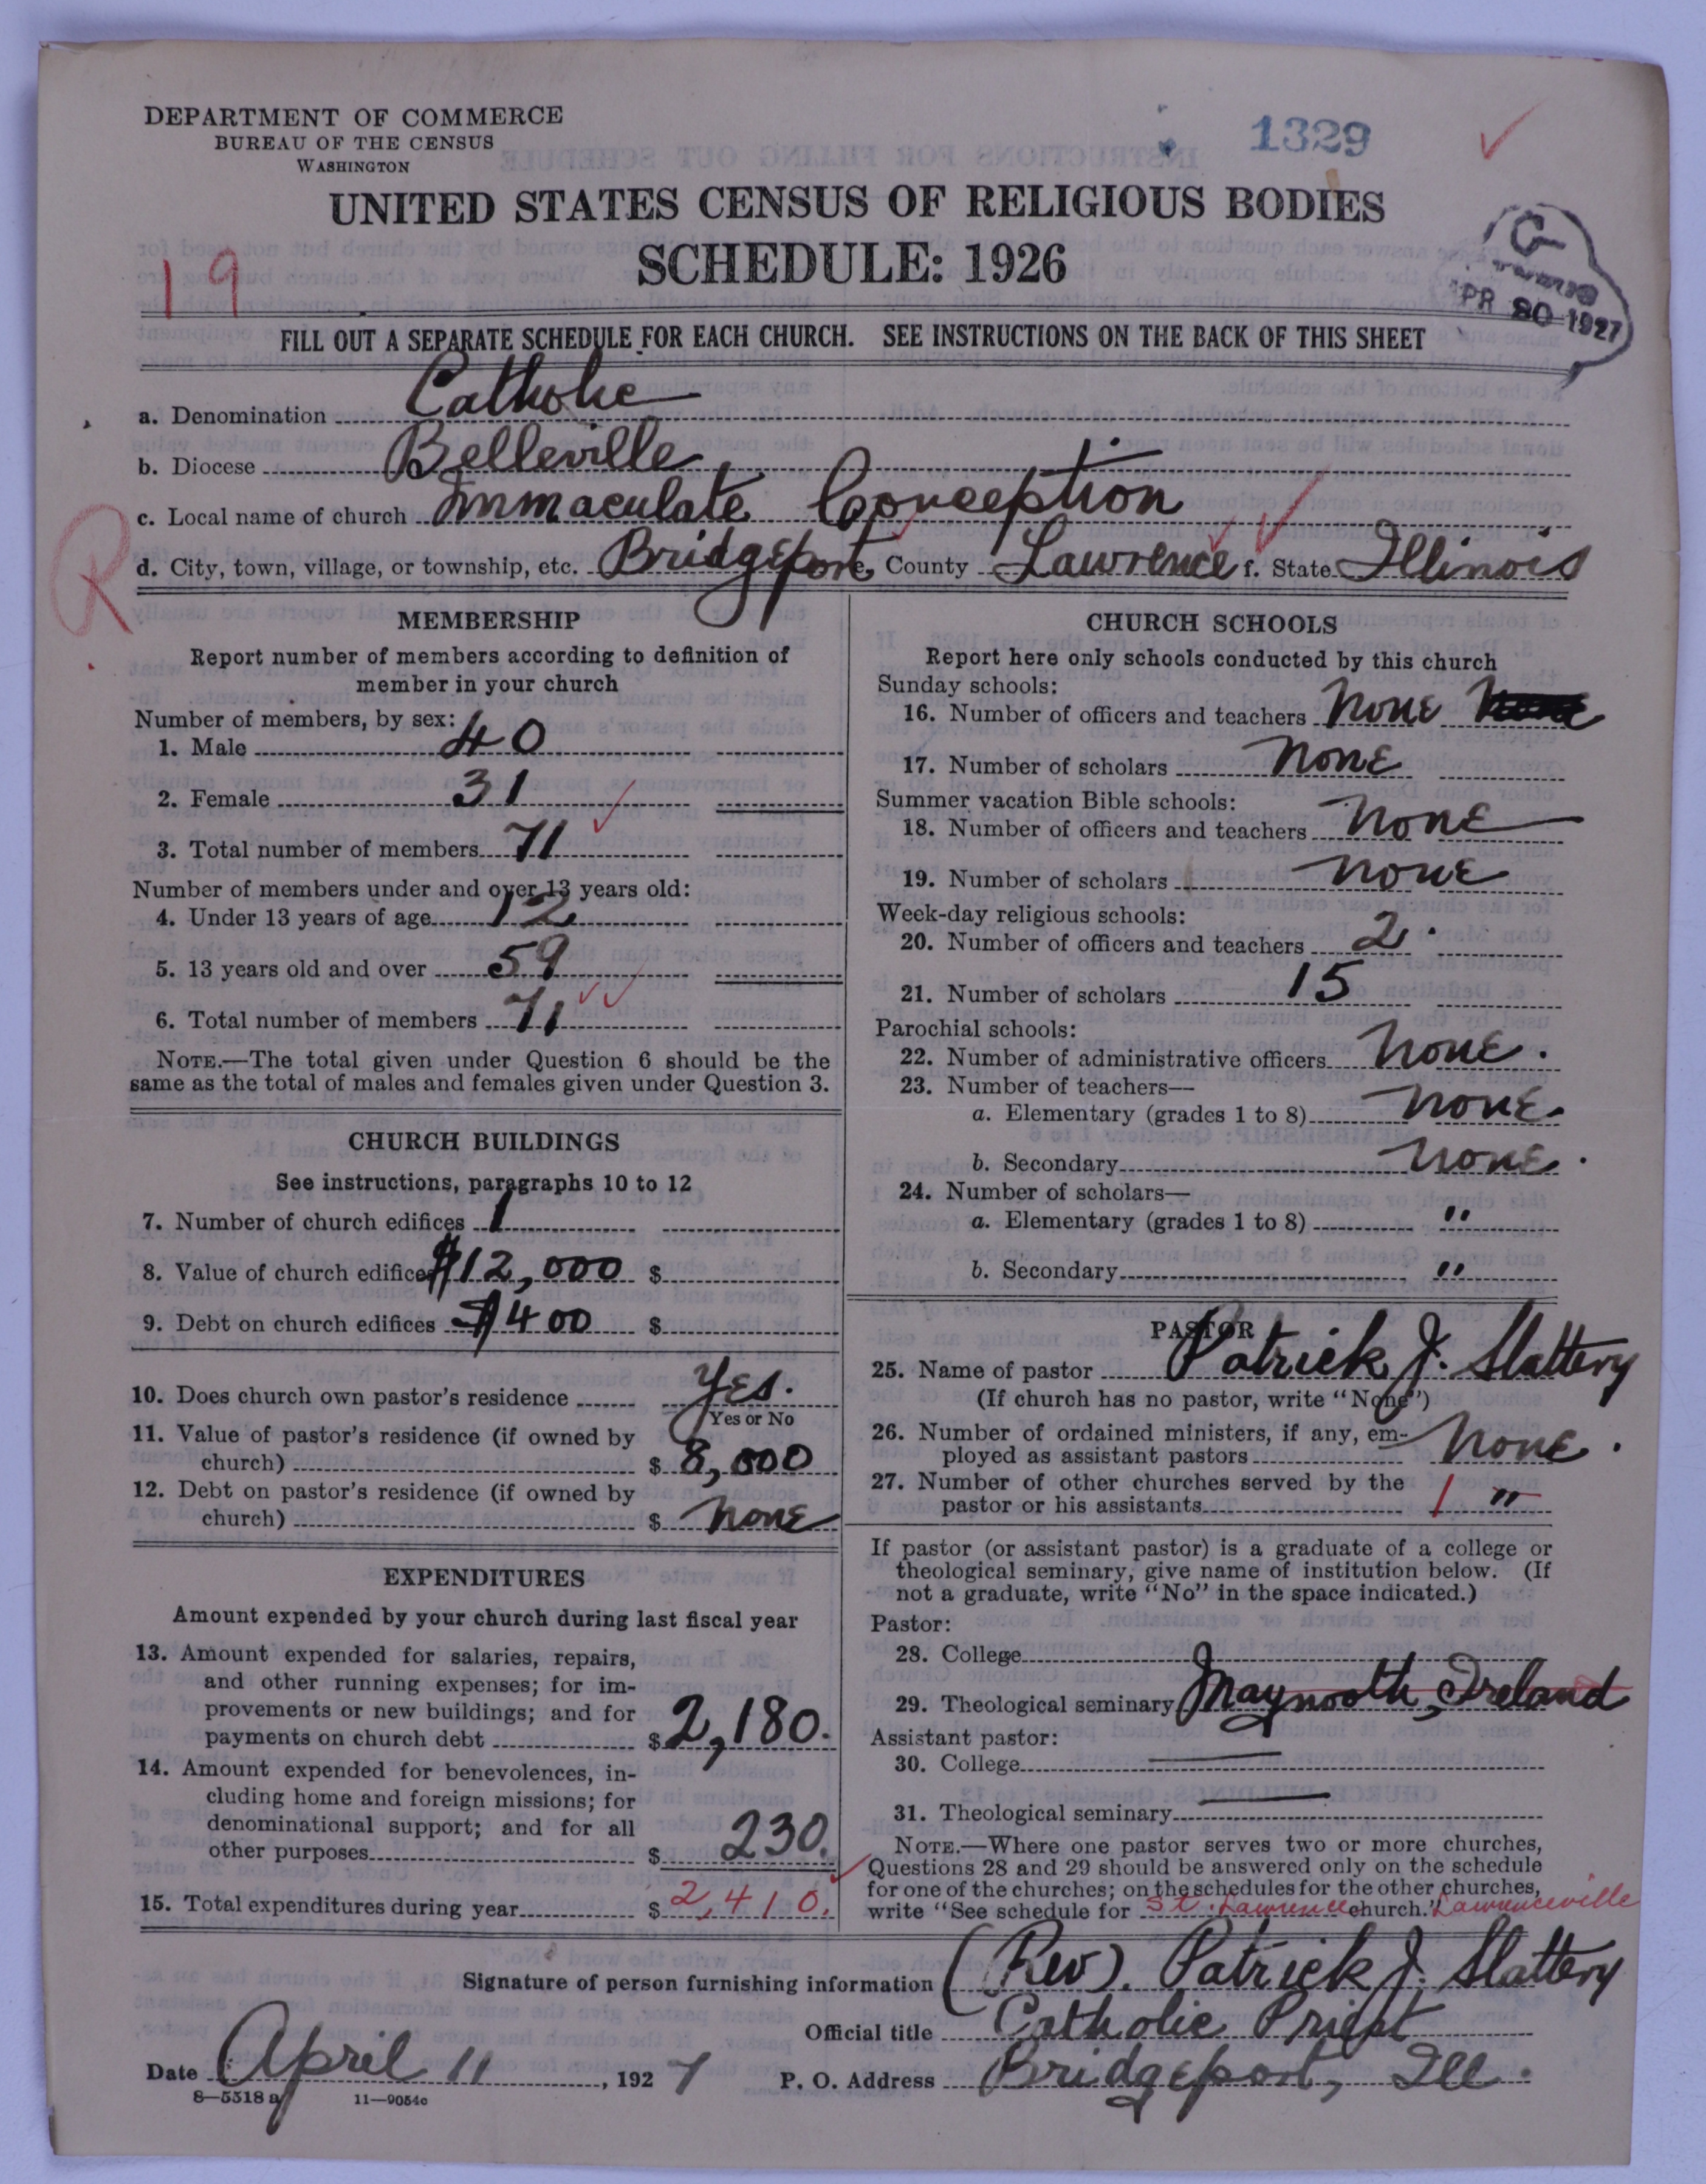 DEPARTMENT OF COMMERCE
BUREAU OF THE CENSUS
WASHINGTON
1329
UNITED STATES CENSUS OF RELIGIOUS BODIES
SCHEDULE: 1926
19
G
APR 30 1927
FILL OUT A SEPARATE SCHEDULE FOR EACH CHURCH. SEE INSTRUCTIONS ON THE BACK OF THIS SHEET
a. Denomination Catholic
b. Diocese Belleville
c. Local name of church Immaculate Conception
R
d. City, town, village, or township, etc. Bridgeport e. County Lawrence f. State Illinois
MEMBERSHIP
Report number of members according to definition of
member in your church
Number of members, by sex:
1. Male 40
2. Female 31
3. Total number of members 71
Number of members under and over 13 years old:
4. Under 13 years of age 12
5. 13 years old and over 59
6. Total number of members 71
NOTE.—The total given under Question 6 should be the
same as the total of males and females given under Question 3.
CHURCH BUILDINGS
See instructions, paragraphs 10 to 12
7. Number of church edifices 1
8. Value of church edifices $12,000 $
9. Debt on church edifices $400 $
10. Does church own pastor's residence Yes.
Yes or No
11. Value of pastor's residence (if owned by
church) $ 8,000
12. Debt on pastor's residence (if owned by
church) $ None
EXPENDITURES
Amount expended by your church during last fiscal year
13. Amount expended for salaries, repairs,
and other running expenses; for im-
provements or new buildings; and for
payments on church debt $ 2,180.
14. Amount expended for benevolences, in-
cluding home and foreign missions; for
denominational support; and for all
other purposes $ 230.
15. Total expenditures during year $ 2,410.
CHURCH SCHOOLS
Report here only schools conducted by this church
Sunday schools:
16. Number of officers and teachers None
17. Number of scholars None
Summer vacation Bible schools:
18. Number of officers and teachers None
19. Number of scholars None
Week-day religious schools:
20. Number of officers and teachers 2.
21. Number of scholars 15
Parochial schools:
22. Number of administrative officers None.
23. Number of teachers—
a. Elementary (grades 1 to 8) None.
b. Secondary None.
24. Number of scholars—
a. Elementary (grades 1 to 8) "
b. Secondary "
PASTOR
25. Name of pastor Patrick J. Slattery
(If church has no pastor, write "None")
26. Number of ordained ministers, if any, em-
ployed as assistant pastors None.
27. Number of other churches served by the
pastor or his assistants 1 "
If pastor (or assistant pastor) is a graduate of a college or
theological seminary, give name of institution below. (If
not a graduate, write "No" in the space indicated.)
Pastor:
28. College
29. Theological seminary Maynooth, Ireland
Assistant pastor:
30. College
31. Theological seminary
NOTE.—Where one pastor serves two or more churches,
Questions 28 and 29 should be answered only on the schedule
for one of the churches; on the schedules for the other churches,
write "See schedule for St. Lawrence church." Lawrenceville
Signature of person furnishing information (Rev). Patrick J. Slattery
Official title Catholic Priest
Date April 11, 1927 P. O. Address Bridgeport, Ill.
8—5518 a 11—9054c